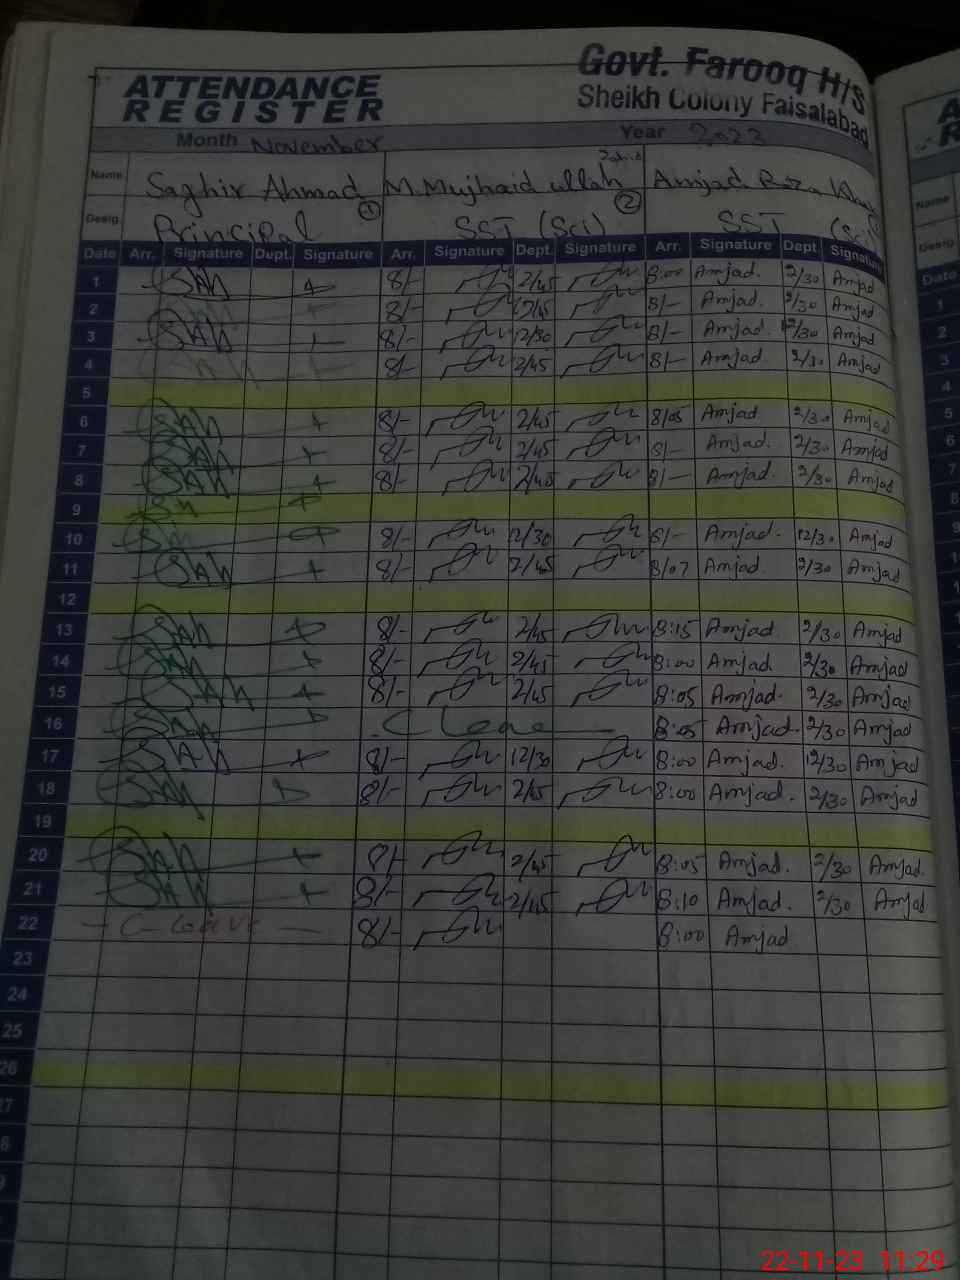 ATTENDANCE REGISTER
Govt. Farooq H/S
Sheikh Colony Faisalabad
Month November Year 2023
Name Saghir Ahmad M. Mujhaid ullah Zahid Amjad Raza Khan
Desig. Principal ① SST (Sci) ② SST (Sci)
Date Arr. Signature Dept. Signature Arr. Signature Dept. Signature Arr. Signature Dept. Signature
1 SAH 8/- 2/45 8:00 Amjad. 2/30 Amjad
2 8/- 2/45 8/- Amjad. 2/30 Amjad
3 SAH 8/- 12/30 8/- Amjad. 12/30 Amjad
4 8/- 2/45 8/- Amjad. 2/30 Amjad
5
6 SAH 8/- 2/45 8/05 Amjad 2/30 Amjad
7 SAH 8/- 2/45 8/- Amjad. 2/30 Amjad
8 SAH 8/- 2/45 8/- Amjad. 2/30 Amjad
9
10 8/- 12/30 8/- Amjad. 12/30 Amjad
11 SAH 8/- 2/45 8/07 Amjad. 2/30 Amjad
12
13 SAH 8/- 2/45 8:15 Amjad. 2/30 Amjad
14 SAH 8/- 2/45 8:00 Amjad 2/30 Amjad
15 SAH 8/- 2/45 8:05 Amjad. 2/30 Amjad
16 SAH C Leave 8:05 Amjad. 2/30 Amjad
17 SAH 8/- 12/30 8:00 Amjad. 12/30 Amjad
18 SAH 8/- 2/45 8:00 Amjad. 2/30 Amjad
19
20 SAH 8/- 2/45 8:05 Amjad. 2/30 Amjad.
21 SAH 8/- 2/45 8:10 Amjad. 2/30 Amjad
22 - C- Leave - 8/- 8:00 Amjad
23
24
25
26
27
22-11-23 11:29